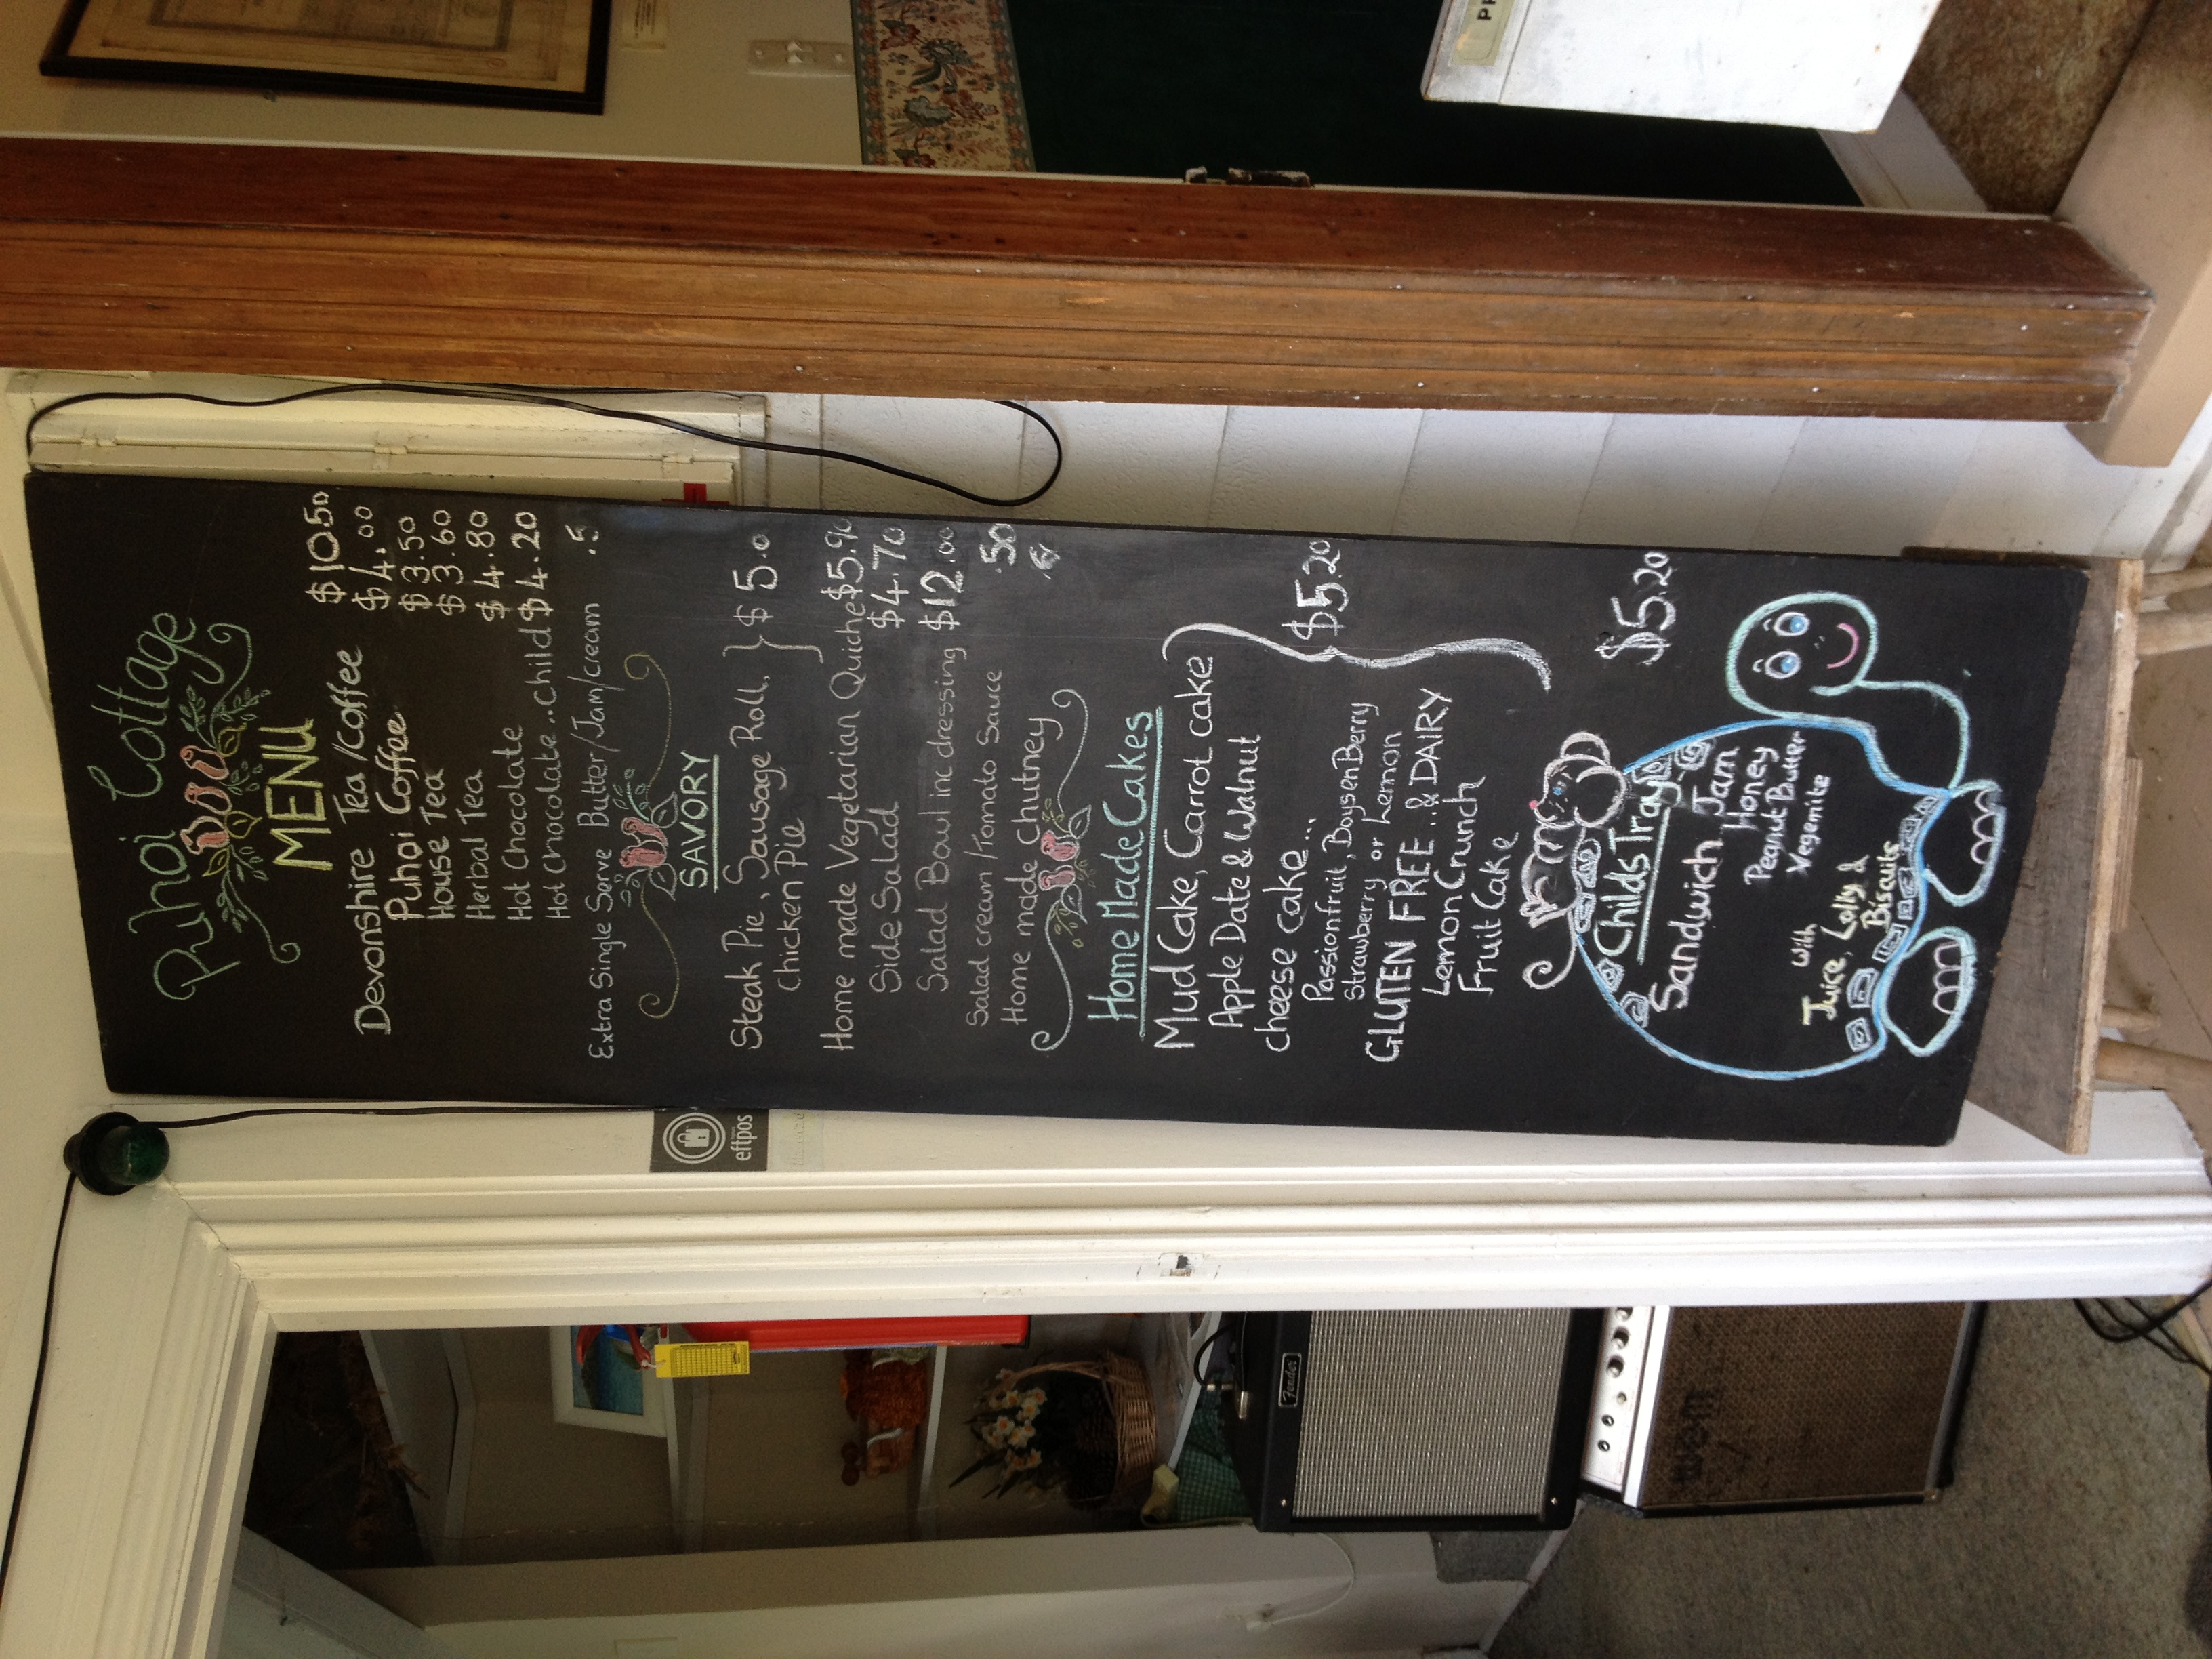 Puhoi Cottage
MENU
Devonshire Tea/Coffee $10.50
Puhoi Coffee $4.00
House Tea $3.50
Herbal Tea $3.60
Hot Chocolate $4.80
Hot Chocolate..Child $4.20
Extra Single Serve Butter/Jam/cream .5
SAVORY
Steak Pie, Sausage Roll, } $5.0
Chicken Pie
Home made Vegetarian Quiche $5.90
Side Salad $4.70
Salad Bowl inc dressing $12.00
Salad cream/Tomato Sauce .50
Home made Chutney
Home Made Cakes
Mud Cake, Carrot cake
Apple Date & Walnut
cheese cake... } $5.20
Passionfruit, BoysenBerry
Strawberry or Lemon
GLUTEN FREE..& DAIRY
Lemon Crunch
Fruit Cake
$5.20
Childs Tray
Sandwich Jam
Honey
Peanut Butter
Vegemite
with
Juice, Lolly &
Biscuits
eftpos
Fender